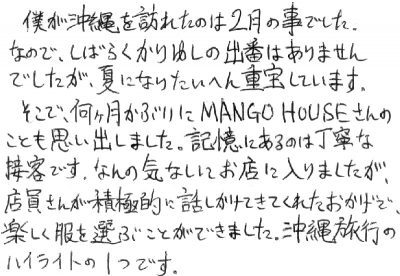 僕が沖縄を訪れたのは2月の事でした。
なので、しばらくかりゆしの出番はありません
でしたが、夏になりたいへん重宝しています。
そこで、何ヶ月かぶりにMANGO HOUSEさんの
ことも思い出しました。記憶にあるのは丁寧な
接客です。なんの気ないしにお店に入りましたが、
店員さんが積極的に話しかけてきてくれたおかげで、
楽しく服を選ぶことができました。沖縄旅行の
ハイライトの1つです。